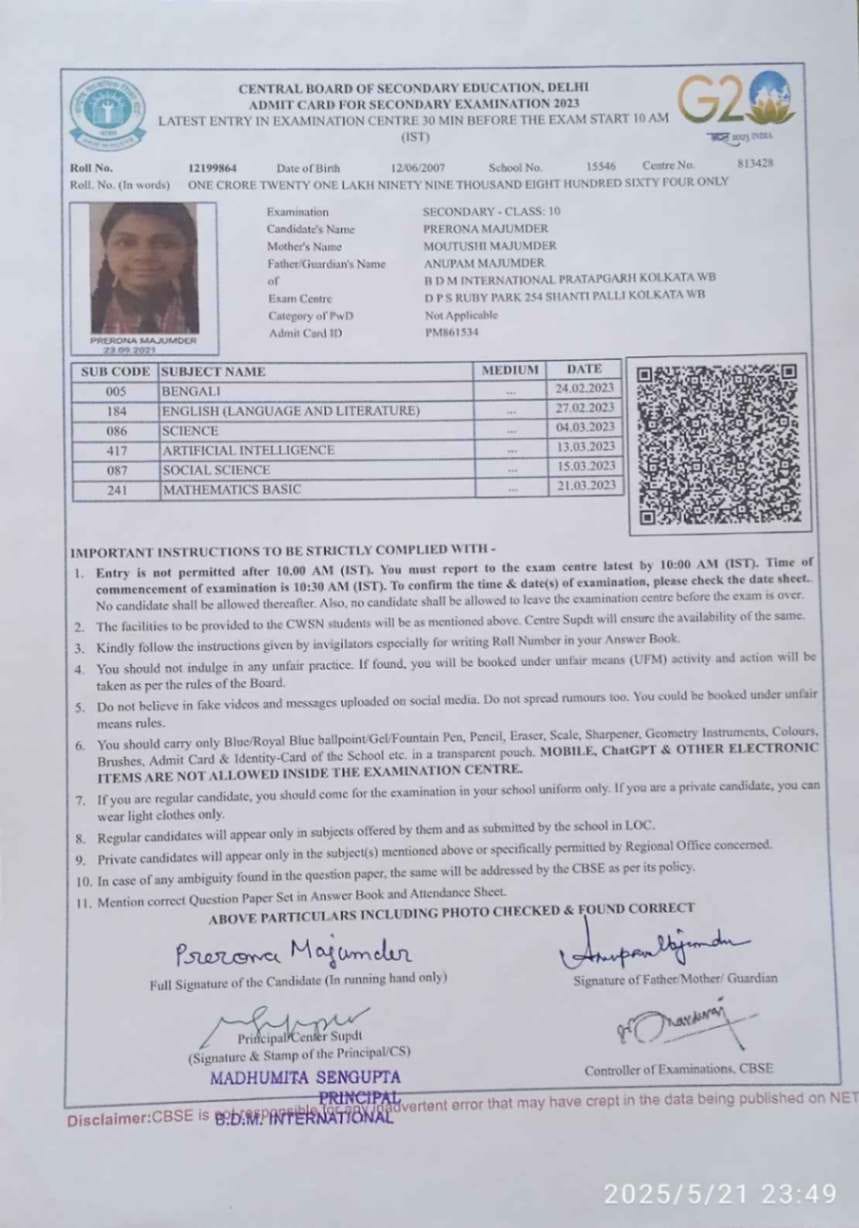 CENTRAL BOARD OF SECONDARY EDUCATION, DELHI
ADMIT CARD FOR SECONDARY EXAMINATION 2023
LATEST ENTRY IN EXAMINATION CENTRE 30 MIN BEFORE THE EXAM START 10 AM
(IST)
G20
Roll No. 12199864 Date of Birth 12/06/2007 School No. 15546 Centre No. 813428
Roll. No. (In words) ONE CRORE TWENTY ONE LAKH NINETY NINE THOUSAND EIGHT HUNDRED SIXTY FOUR ONLY
Examination SECONDARY - CLASS: 10
Candidate's Name PRERONA MAJUMDER
Mother's Name MOUTUSHI MAJUMDER
Father/Guardian's Name ANUPAM MAJUMDER
of B D M INTERNATIONAL PRATAPGARH KOLKATA WB
Exam Centre D P S RUBY PARK 254 SHANTI PALLI KOLKATA WB
Category of PwD Not Applicable
Admit Card ID PM861534
PRERONA MAJUMDER
23.09.2021
SUB CODE SUBJECT NAME MEDIUM DATE
005 BENGALI ... 24.02.2023
184 ENGLISH (LANGUAGE AND LITERATURE) ... 27.02.2023
086 SCIENCE ... 04.03.2023
417 ARTIFICIAL INTELLIGENCE ... 13.03.2023
087 SOCIAL SCIENCE ... 15.03.2023
241 MATHEMATICS BASIC ... 21.03.2023
IMPORTANT INSTRUCTIONS TO BE STRICTLY COMPLIED WITH -
1. Entry is not permitted after 10.00 AM (IST). You must report to the exam centre latest by 10:00 AM (IST). Time of
commencement of examination is 10:30 AM (IST). To confirm the time & date(s) of examination, please check the date sheet..
No candidate shall be allowed thereafter. Also, no candidate shall be allowed to leave the examination centre before the exam is over.
2. The facilities to be provided to the CWSN students will be as mentioned above. Centre Supdt will ensure the availability of the same.
3. Kindly follow the instructions given by invigilators especially for writing Roll Number in your Answer Book.
4. You should not indulge in any unfair practice. If found, you will be booked under unfair means (UFM) activity and action will be
taken as per the rules of the Board.
5. Do not believe in fake videos and messages uploaded on social media. Do not spread rumours too. You could be booked under unfair
means rules.
6. You should carry only Blue/Royal Blue ballpoint/Gel/Fountain Pen, Pencil, Eraser, Scale, Sharpener, Geometry Instruments, Colours,
Brushes, Admit Card & Identity-Card of the School etc. in a transparent pouch. MOBILE, ChatGPT & OTHER ELECTRONIC
ITEMS ARE NOT ALLOWED INSIDE THE EXAMINATION CENTRE.
7. If you are regular candidate, you should come for the examination in your school uniform only. If you are a private candidate, you can
wear light clothes only.
8. Regular candidates will appear only in subjects offered by them and as submitted by the school in LOC.
9. Private candidates will appear only in the subject(s) mentioned above or specifically permitted by Regional Office concerned.
10. In case of any ambiguity found in the question paper, the same will be addressed by the CBSE as per its policy.
11. Mention correct Question Paper Set in Answer Book and Attendance Sheet.
ABOVE PARTICULARS INCLUDING PHOTO CHECKED & FOUND CORRECT
Prerona Majumder
Full Signature of the Candidate (In running hand only)
Signature of Father/Mother/ Guardian
Principal/Center Supdt
(Signature & Stamp of the Principal/CS)
Controller of Examinations, CBSE
MADHUMITA SENGUPTA
PRINCIPAL
B.D.M. INTERNATIONAL
Disclaimer:CBSE is not responsible for any inadvertent error that may have crept in the data being published on NET
2025/5/21 23:49